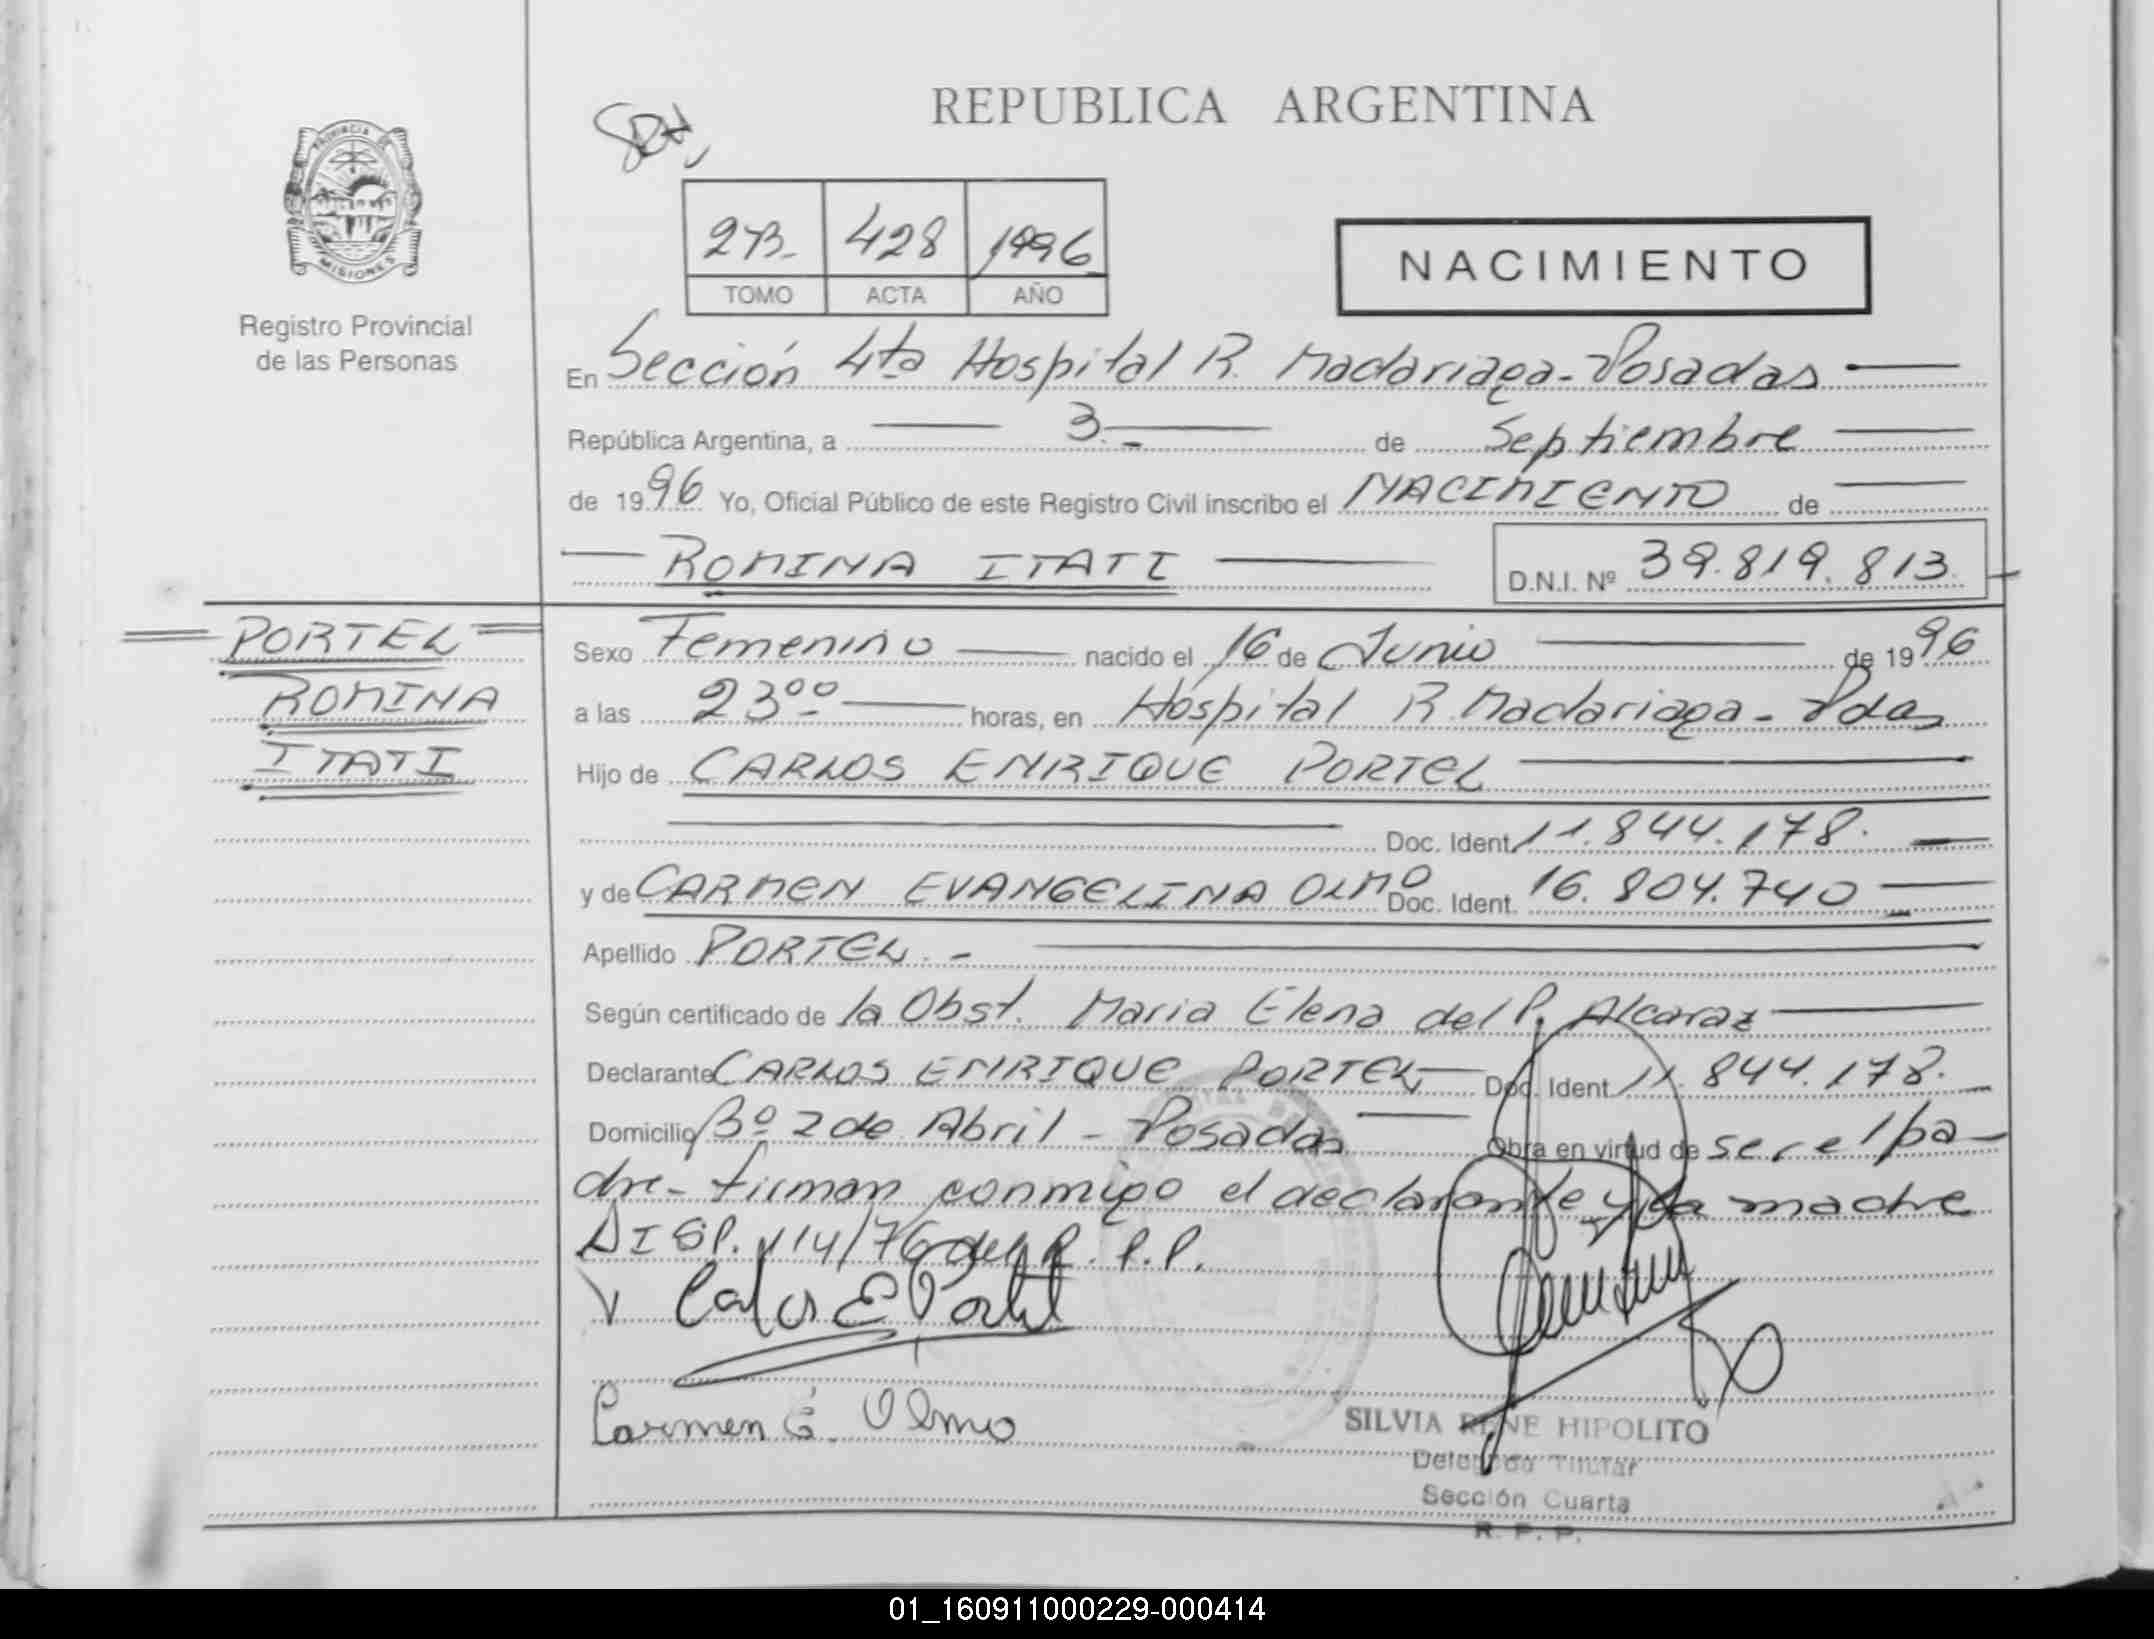 REPUBLICA ARGENTINA
PROVINCIA DE
MISIONES
Registro Provincial
de las Personas
273- 428 1996
TOMO ACTA AÑO
NACIMIENTO
En Sección 4ta Hospital R. Madariaga - Posadas
República Argentina, a 3.- de Septiembre
de 1996 Yo, Oficial Público de este Registro Civil inscribo el NACIMIENTO de
ROMINA ITATI D.N.I. Nº 39.819.813
PORTEL
ROMINA
ITATI
Sexo Femenino nacido el 16 de Junio de 1996
a las 23ºº horas, en Hospital R. Madariaga - Pdas
Hijo de CARLOS ENRIQUE PORTEL
Doc. Ident. 11.844.178.
y de CARMEN EVANGELINA OLMO Doc. Ident. 16.804.740
Apellido PORTEL.-
Según certificado de la Obst. Maria Elena del P. Alcaraz
Declarante CARLOS ENRIQUE PORTEL Doc. Ident. 11.844.178.
Domicilio Bº 2 de Abril - Posadas Obra en virtud de ser el pa-
dre - firman conmigo el declarante y la madre
DISP. 114/76 del R.P.P.
Carlos E Portel
Carmen E. Olmo
SILVIA RENE HIPOLITO
Delegado Titular
Sección Cuarta
R. P. P.
01_160911000229-000414